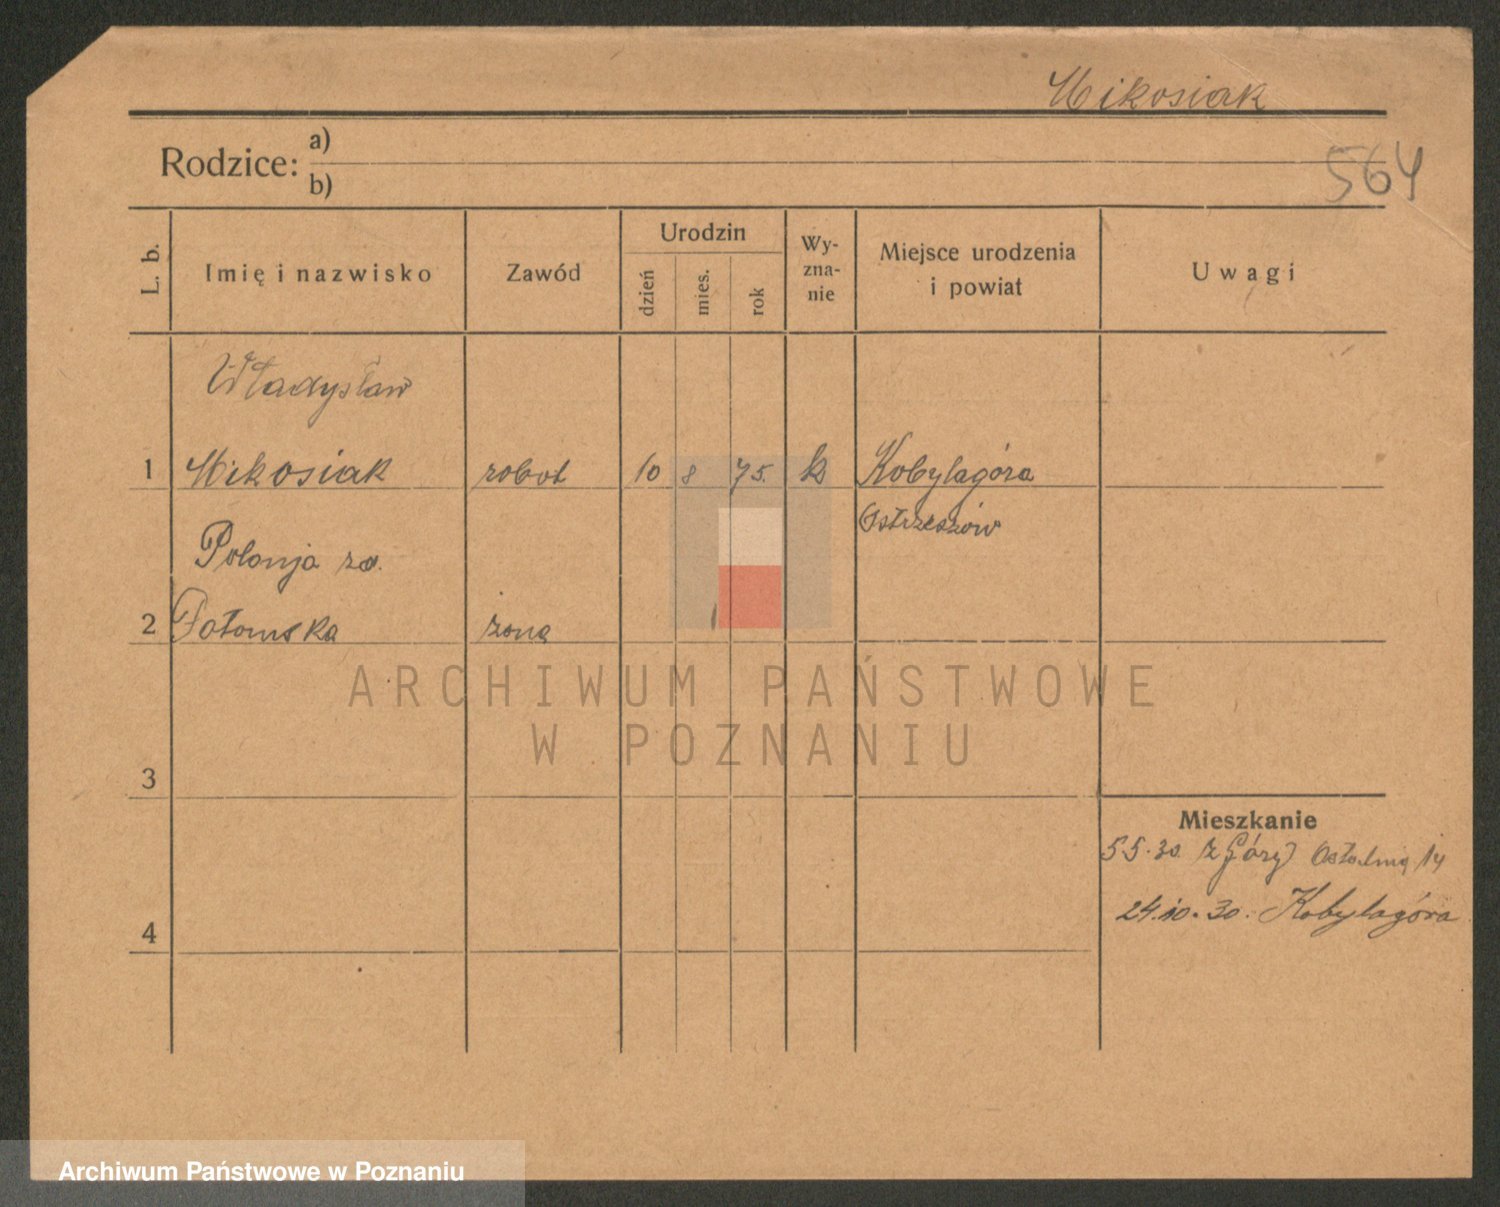 Mikosiak
564
Rodzice: a)
b)
L. b.
Imię i nazwisko
Zawód
Urodzin
dzień
mies.
rok
Wy-
zna-
nie
Miejsce urodzenia
i powiat
Uwagi
Władysław
1 Mikosiak robot 10 8 75. k Kobylagóra
Ostrzeszów
Polonja
2 żona
ARCHIWUM PAŃSTWOWE
W POZNANIU
3
Mieszkanie
5.5.30 z Góry 14
4
24.10.30. Kobylagóra
Archiwum Państwowe w Poznaniu